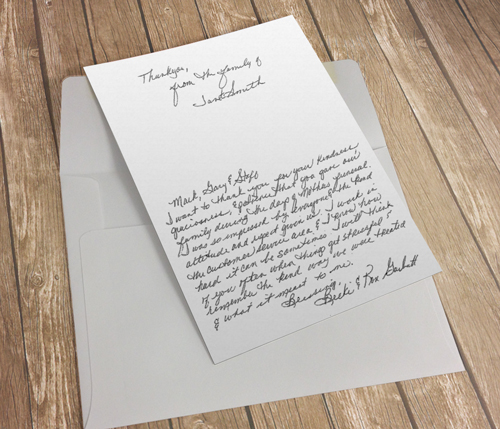 Thankyou,
from the family of
Jane Smith
Mark, Gary & Staff
I want to thank you for your kindness
graciousness, & patience that you gave our
family during the days of Mothers funeral.
I was so impressed by everyone & the kind
attitude and respect given us. I work in
the customer service area & I know how
hard it can be sometimes. I will think
of you often when things get stressful &
remember the kind way we were treated
& what it meant to me.
Blessings,
& Ron